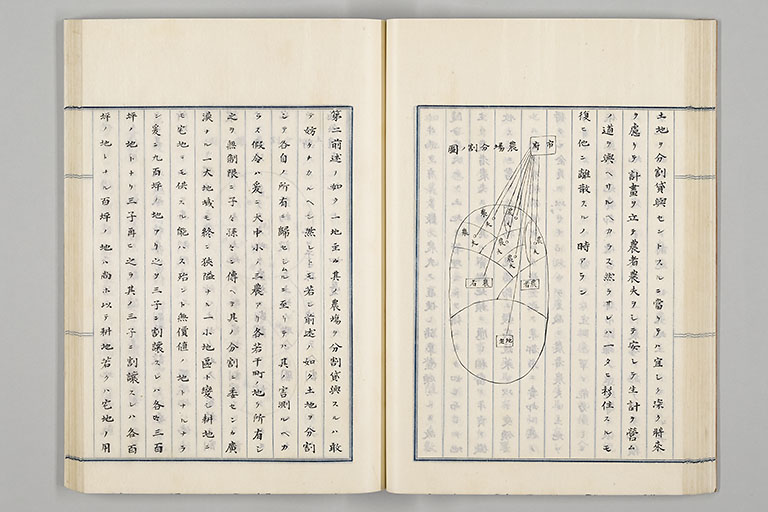 土地ヲ分割貸與セントスルニ當リテハ宜シク深ク將來
ヲ慮リテ計畫ヲ立テ農者農夫ヲシテ安シテ生計ヲ營ム
ノ道ヲ與ヘサルベカラス然ラサレハ一タヒ移住スルモ
復ヒ他ニ離散スルノ時アラン
農場分割ノ圖
市府
農夫
農夫
農夫
農夫
農夫
農夫
農者
農者
地主
第二前述ノ如ク一地主ハ其ノ農場ヲ分割貸與スルハ敢
テ妨ケナカルヘシ然レトモ若シ前述ノ如ク土地ヲ分割
シテ各自ノ所有ニ歸セシムルニ至リテハ其ノ害測ルベカ
ラス假令ハ爰ニ大中小ノ三農アリ各若干町ノ地ヲ所有シ
之ヲ無制限ニ子々孫々ニ傳ヘテ其ノ分割ニ委センカ廣
漠タル一大地域モ終ニ狹隘ナル一小地區ニ變シ耕地ニ
モ宅地ニモ供スル能ハス殆ント無價値ノ地トナルナラ
ン爰ニ九百坪ノ地アリ之ヲ三子ニ割讓スレハ各々三百
坪ノ地トナリ三子再ヒ之ヲ其ノ三子ニ割讓スレハ各百
坪ノ地トナル百坪ノ地ハ尚ホ以テ耕地若クハ宅地ノ用